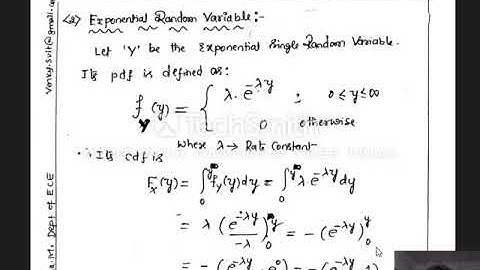 (2) Exponential Random Variable:-
Let 'Y' be the Exponential Single Random Variable.
Its pdf is defined as:
f_Y(y) = { λ. e^-λy ; 0 ≤ y ≤ ∞
0 otherwise
Where λ → Rate Constant-
∴ Its cdf is
F_X(y) = ∫_0^y f_y(y)dy = ∫_0^y λ e^-λy dy
= λ (e^-λy / -λ)_0^y = - (e^-λy)_0^y
= - (e^-λy - e^0) = - (e^-λy
TechSmith
Dept of ECE